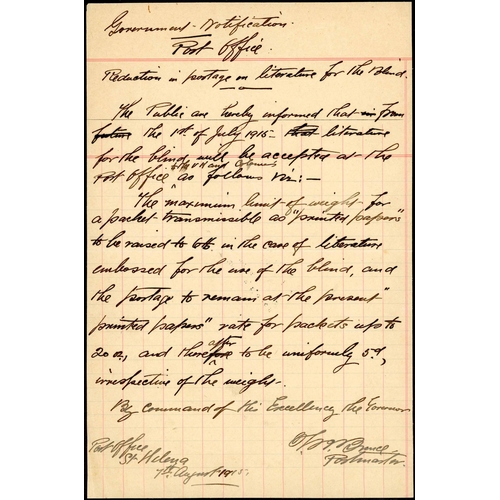 Government Notification.
Post Office.
Reduction in postage on literature for the Blind.
The Public are hereby informed that in from
future the 1st of July 1915 that literature
for the blind will be accepted at the
to the U K and Colonies
Post Office as follows viz:-
The maximum limit of weight for
a packet transmissible as "printed papers"
to be raised to 6 lb. in the case of literature
embossed for the use of the blind, and
the postage to remain at the present
"printed papers" rate for packets up to
after
20 oz, and therefore to be uniformly 5d,
irrespective of the weight.
By command of His Excellency the Governor
Post Office
St. Helena
7th August 1915.
Bruce
Postmaster.